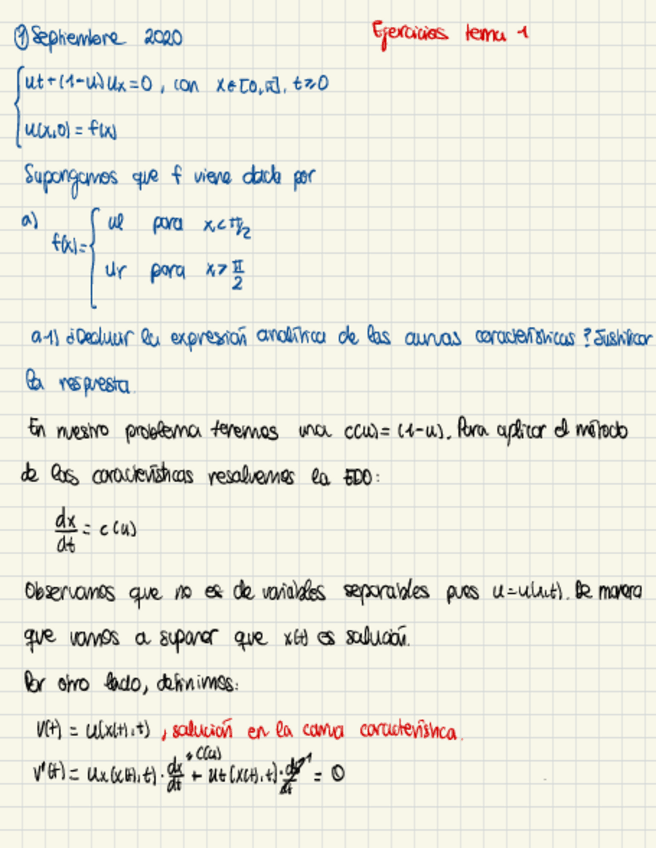 ① Septiembre 2020
Ejercicios tema 1
ut + (1-u) ux = 0, con x ∈ [0, π], t ≥ 0
u(x,0) = f(x)
Supongamos que f viene dada por
a) f(x) = { ul para x < π/2
ur para x > π/2
a-1) ¿Deducir la expresión analítica de las curvas características? Justificar
la respuesta.
En nuestro problema tenemos una c(u) = (1-u). Para aplicar el método
de las características resolvemos la EDO:
dx/dt = c(u)
Observamos que no es de variables separables pues u = u(x,t). De manera
que vamos a suponer que x(t) es solución.
Por otro lado, definimos:
V(t) = u(x(t),t), solución en la curva característica.
V'(t) = ux(x(t),t) · dx/dt + ut(x(t),t) · dt/dt = 0